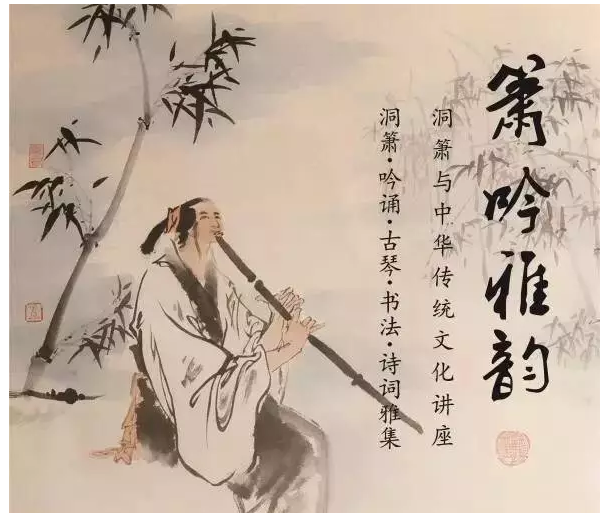 箫吟雅韵
洞箫与中华传统文化讲座
洞箫·吟诵·古琴·书法·诗词雅集